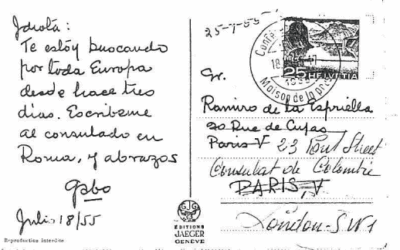 Idiota:
Te estóy buscando
por toda Europa
desde hace tres
días. Escribeme
al consulado en
Roma, y abrazos
Gabo
Julio 18/55
Reproduction interdite
25-7-55
HELVETIA
25
Maison de la
Sr.
Ramiro de la Espriella
20 Rue de Cujas
Paris-V 23 Pont Street
Consulat de Colombie
PARIS, V
London-SW1
EDITIONS
JAEGER
GENÈVE